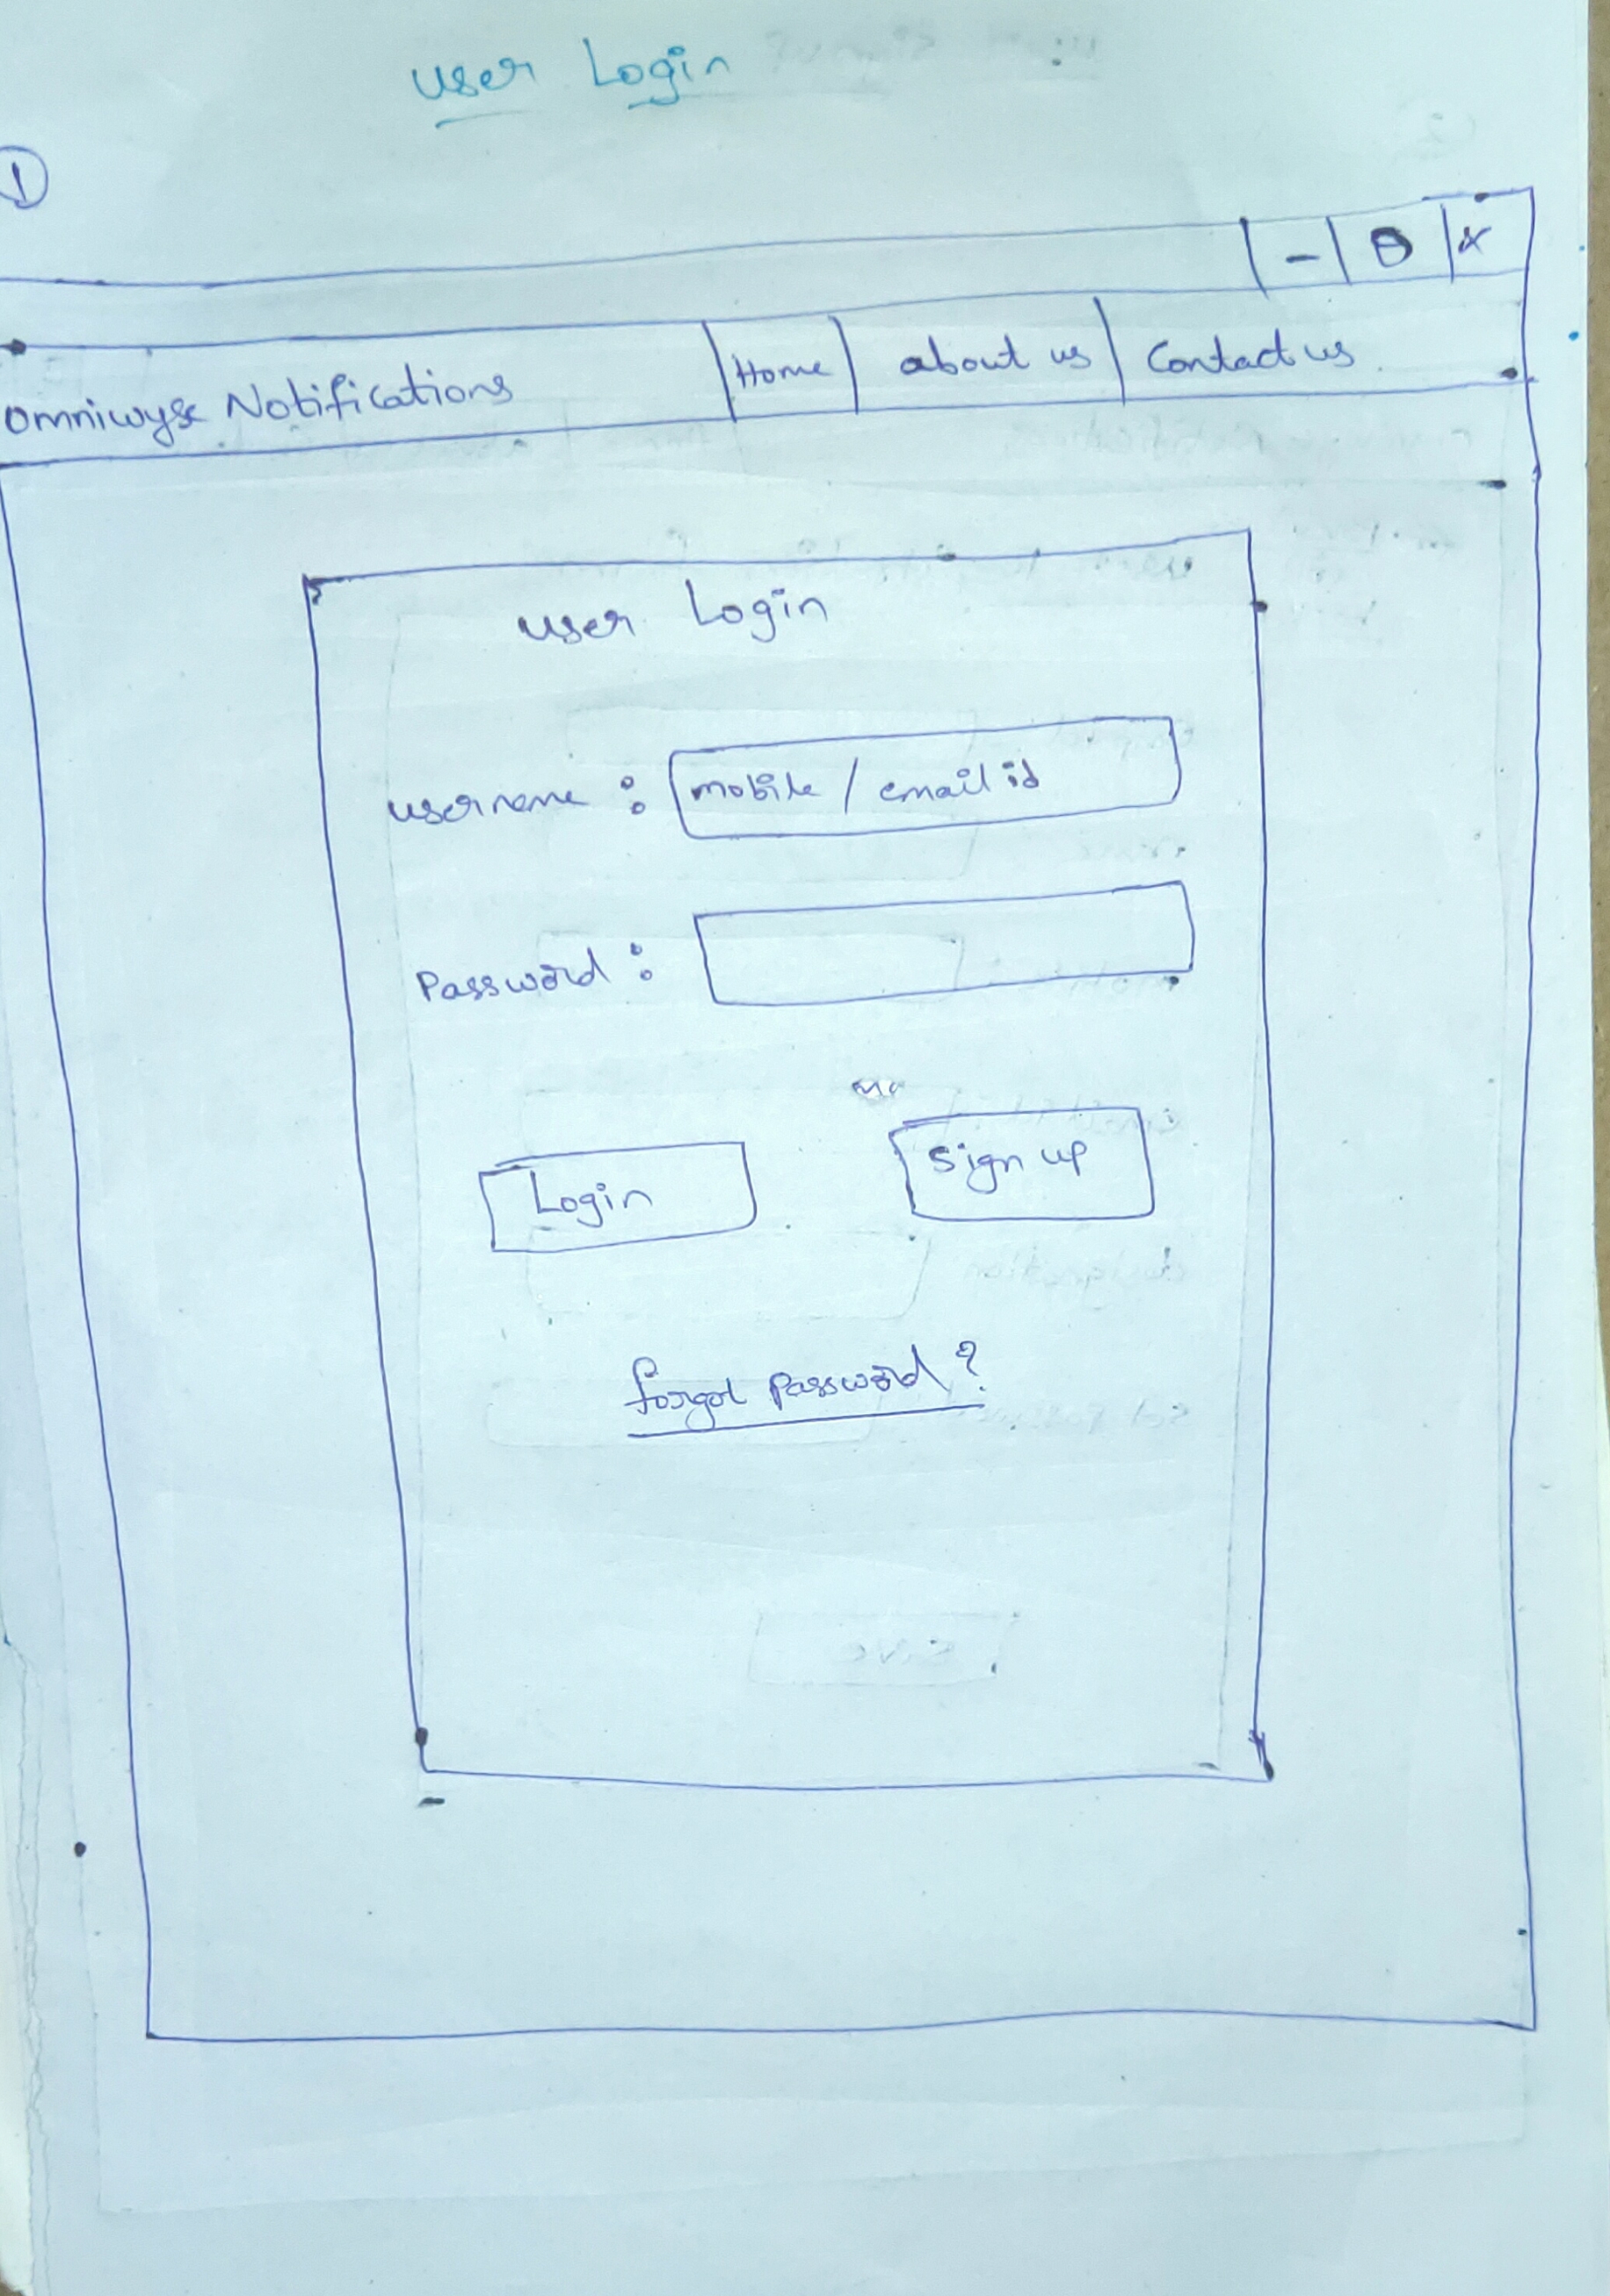 User Login
1
- x
Omniwyse Notifications Home about us Contact us
User Login
username : mobile / email id
Password :
Login Sign up
forgot password ?